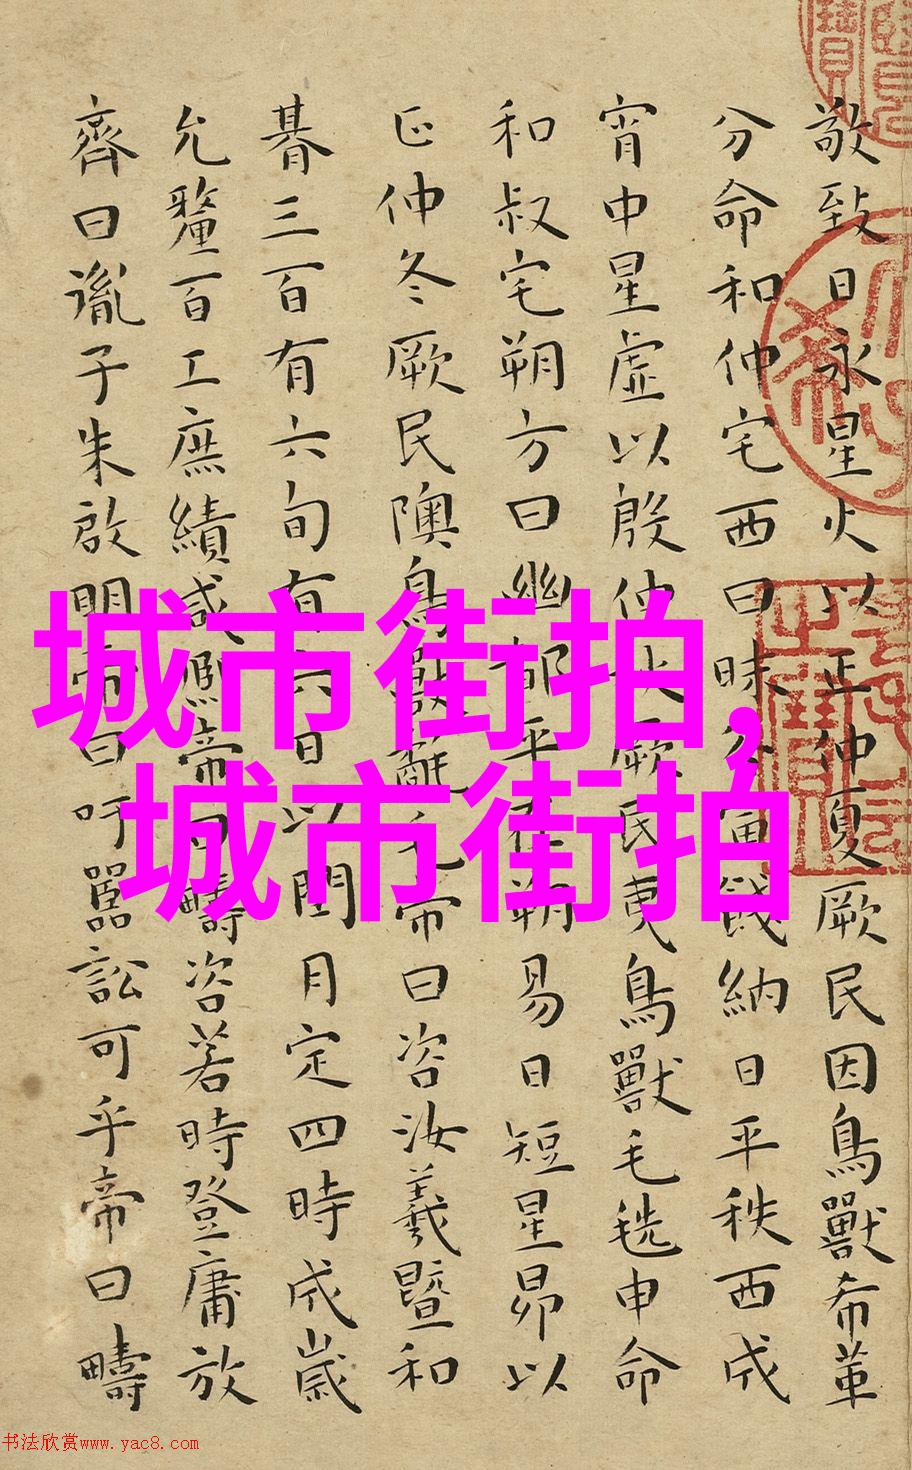 敬致日永星火以正仲夏厥民因鳥獸希革
分命和仲宅西曰昧谷寅餞納日平秩西成
宵中星虛以殷仲秋厥民夷鳥獸毛毨申命
和叔宅朔方曰幽都平在朔易日短星昴以
正仲冬厥民隩鳥獸氄毛帝曰咨汝羲暨和
朞三百有六旬有六日以閏月定四時成歲
允釐百工庶績咸熙帝曰疇咨若時登庸放
齊曰胤子朱啟明帝曰吁嚚訟可乎帝曰疇
城市街拍,
城市街拍
书法欣赏www.yac8.com